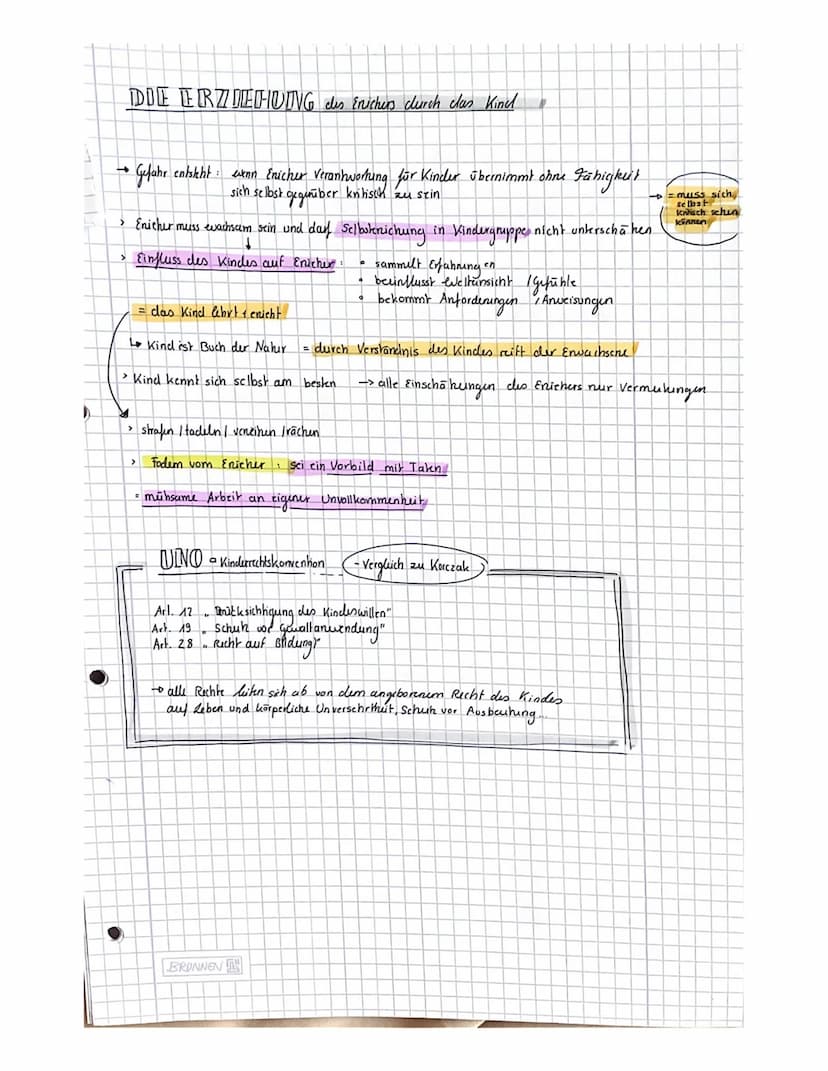 DIE ERZIEHUNG des Erziehers durch das Kind
→ Gefahr entsteht : wenn Erzieher Verantwortung für Kinder übernimmt ohne Fähigkeit
sich selbst gegenüber kritisch zu sein
→ = muss sich
selbst
kritisch sehen
können
> Erzieher muss wachsam sein und darf Selbsterziehung in Kindergruppe nicht unterschätzen
↓
> Einfluss des Kindes auf Erzieher : • sammelt Erfahrungen
• beeinflusst Weltansicht / Gefühle
• bekommt Anforderungen / Anweisungen
= das Kind lehrt & erzieht
↳ Kind ist Buch der Natur = durch Verständnis des Kindes reift der Erwachsene
> Kind kennt sich selbst am besten → alle Einschätzungen des Erziehers nur Vermutungen
> strafen / tadeln / verzeihen / rächen
> Fodern vom Erzieher : sei ein Vorbild mit Taten
= mühsame Arbeit an eigener Unvollkommenheit
UNO - Kinderrechtskonvention - Vergleich zu Korczak
Art. 12 „ Brücksichtigung des Kindeswillen"
Art. 19 „ Schutz vor Gewaltanwendung"
Art. 28 „ Recht auf Bildung"
→ alle Rechte leiten sich ab von dem angeborenem Recht des Kindes
auf Leben und körperliche Unversehrtheit, Schutz vor Ausbeutung...
BRUNNEN